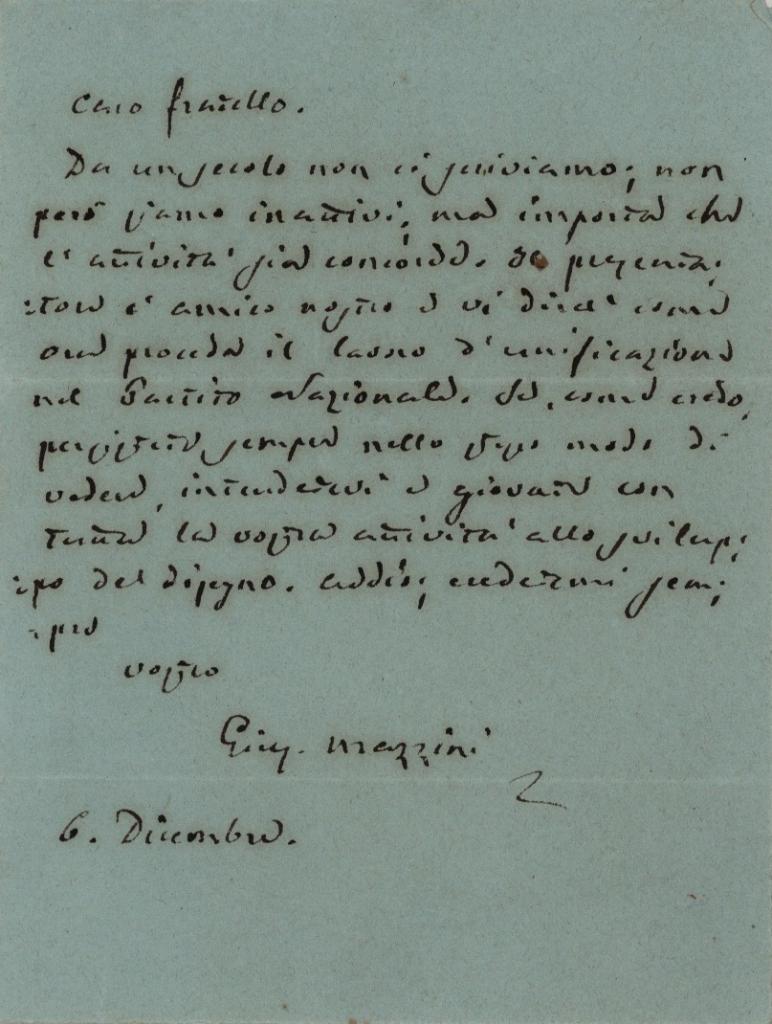 Caro fratello.
Da un secolo non ci scriviamo; non
però siamo inattivi; ma importa che
l'attività sia concorde. Il presenta:
:tore è amico nostro e vi dirà come
ora proceda il lavoro d'unificazione
nel Partito Nazionale. Se, come credo,
persistete sempre nello stesso modo di
vedere, intendetevi e giovate con
tutta la vostra attività allo svilup:
:po del disegno. Addio; credetemi sem:
:pre
vostro
Gius. Mazzini
6. Dicembre.